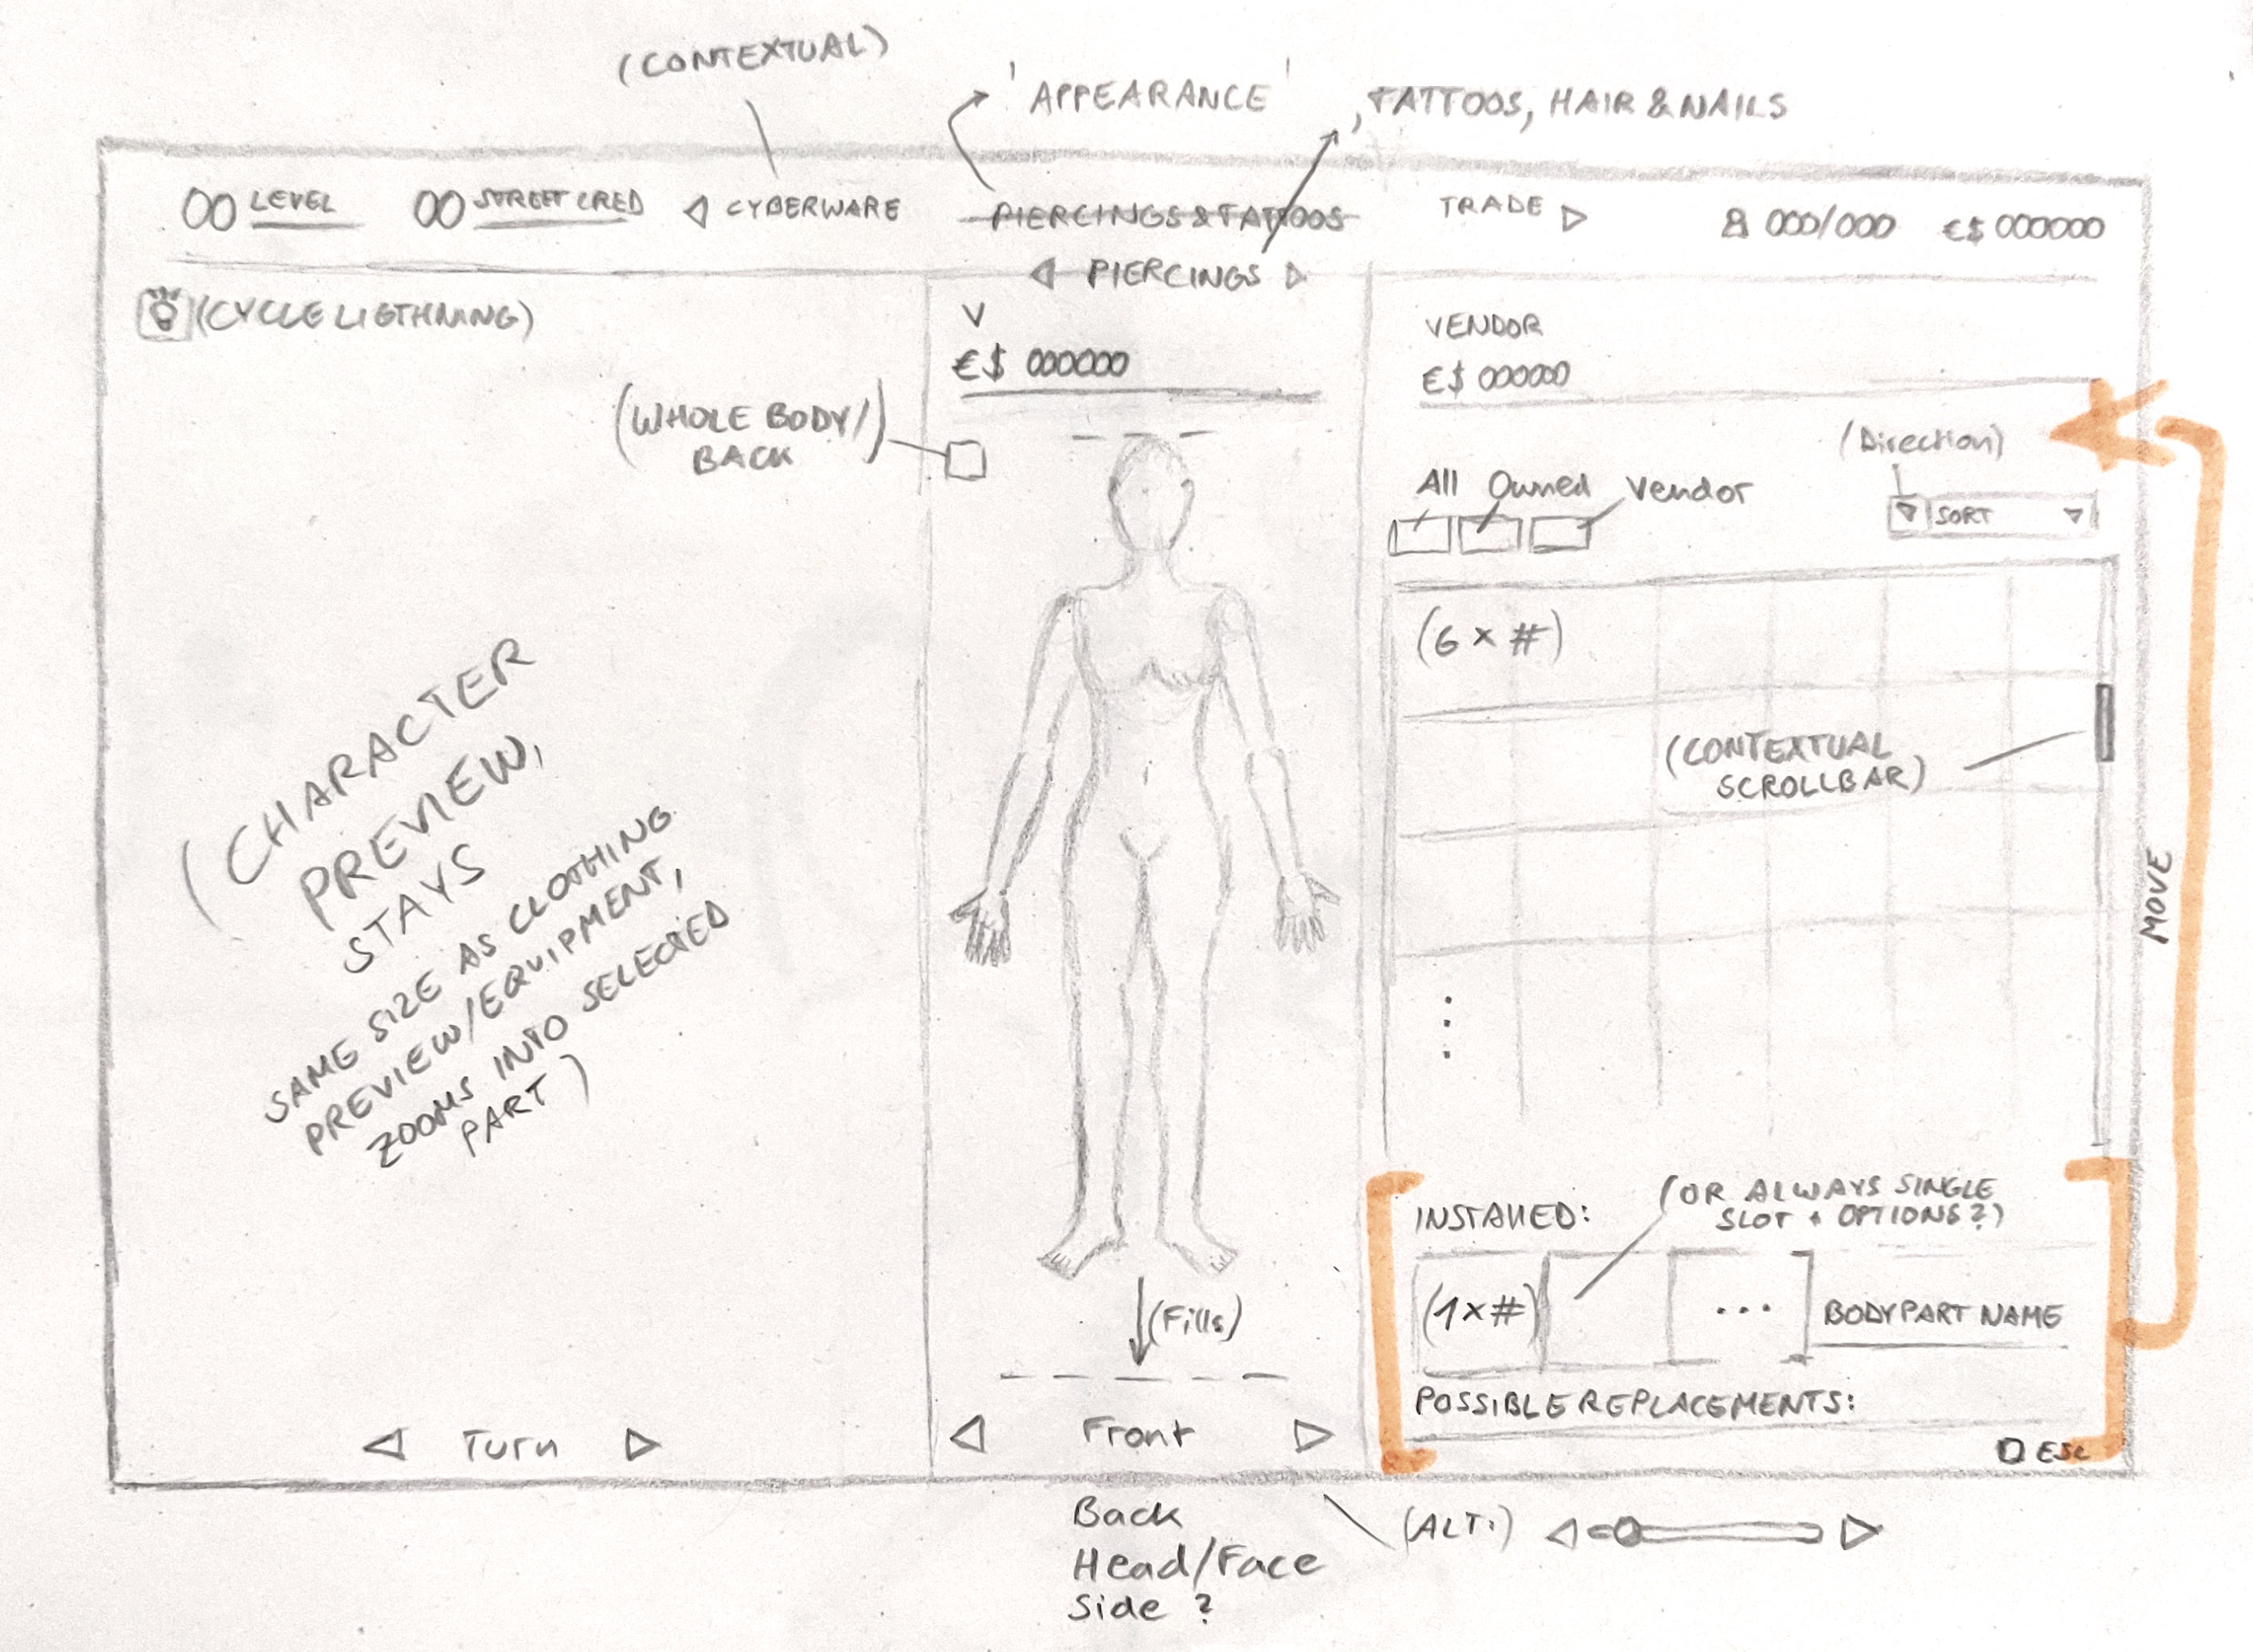 (CONTEXTUAL)
'APPEARANCE'
, TATTOOS, HAIR & NAILS
00 LEVEL
00 STREET CRED
◁ CYBERWARE
PIERCINGS & TATTOOS
TRADE ▷
000/000
€$ 000000
◁ PIERCINGS ▷
(CYCLE LIGTHNING)
V
€$ 000000
VENDOR
€$ 000000
(WHOLE BODY/)
BACK
(Direction)
All Owned Vendor
SORT
(6 × #)
(CONTEXTUAL
SCROLLBAR)
(CHARACTER
PREVIEW,
STAYS
SAME SIZE AS CLOTHING
PREVIEW/EQUIPMENT,
ZOOMS INTO SELECTED
PART)
MOVE
INSTALLED:
(OR ALWAYS SINGLE
SLOT + OPTIONS?)
(1×#)
...
BODYPART NAME
(Fills)
POSSIBLE REPLACEMENTS:
◁ Turn ▷
◁ Front ▷
ESC
Back
Head/Face
Side ?
(ALT:)